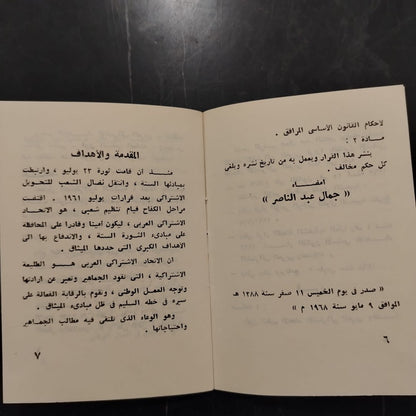 لأحكام القانون الأساسى المرافق .
مادة ٢ :
ينشر هذا القرار ويعمل به من تاريخ نشره ويلغى
كل حكم مخالف .
امضاء
« جمال عبد الناصر »
« صدر فى يوم الخميس ١١ صفر سنة ١٣٨٨ هـ
الموافق ٩ مايو سنة ١٩٦٨ م »
٦
المقدمة والأهداف
منذ ان قامت ثورة ٢٣ يوليو ، وارتبطت
بمبادئها الستة ، وانتقل نضال الشعب للتحويل
الاشتراكى بعد قرارات يوليو ١٩٦١ . اقتضت
مراحل الكفاح قيام تنظيم شعبى ، هو الاتحاد
الاشتراكى العربى ، ليكون امينا وقادرا على المحافظة
على مبادىء الثورة الستة ، والاندفاع بها الى
الأهداف الكبرى التى حددها الميثاق .
ان الاتحاد الاشتراكى العربى هو الطليعة
الاشتراكية ، التى تقود الجماهير وتعبر عن ارادتها
وتوجه العمل الوطنى ، وتقوم بالرقابة الفعالة على
سيره فى خطه السليم فى ظل مبادىء الميثاق .
وهو الوعاء الذى تلتقى فيه مطالب الجماهير
واحتياجاتها .
٧